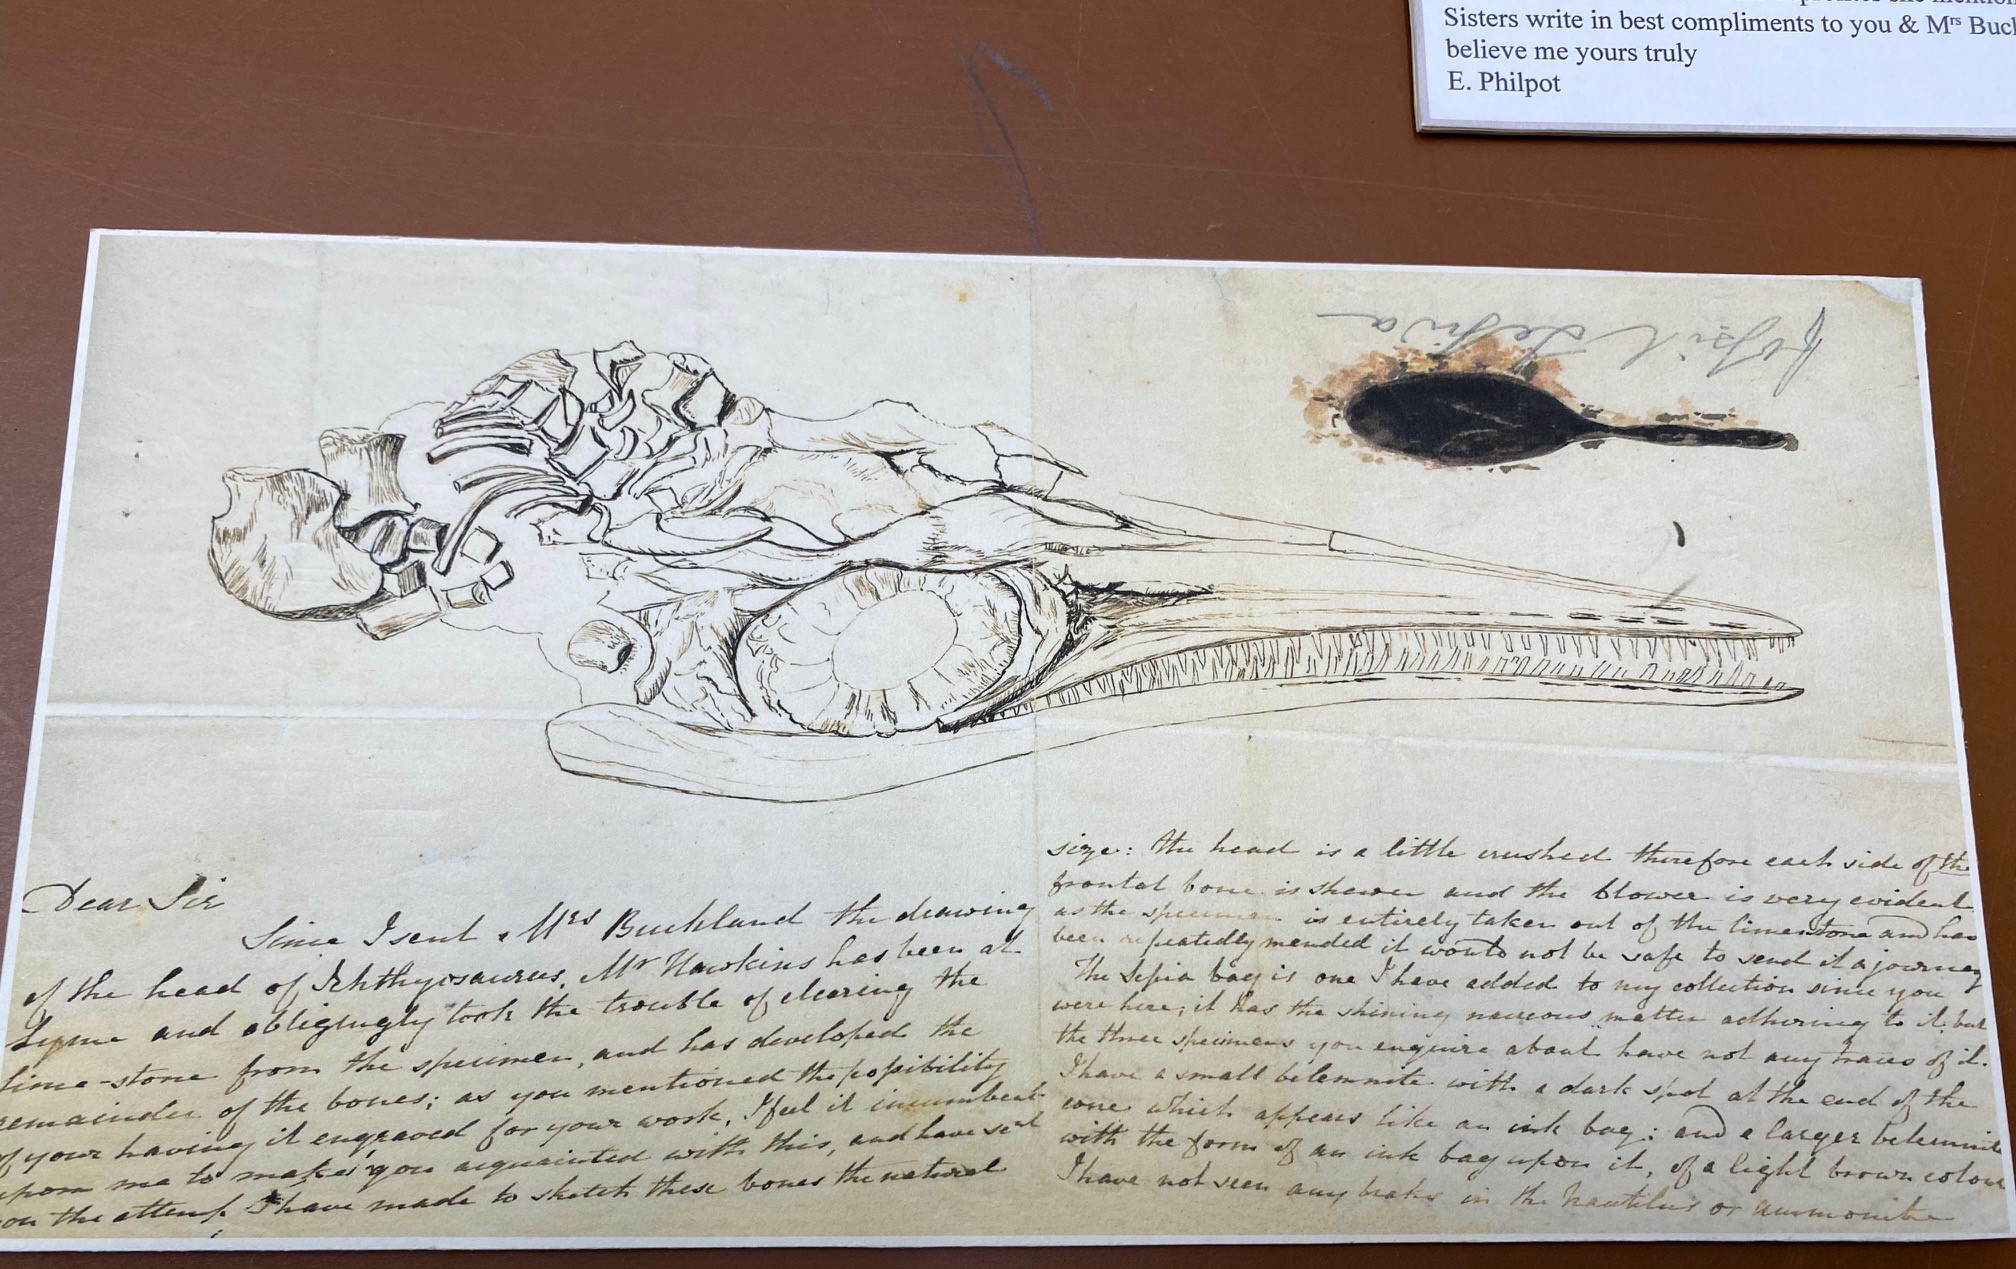 Sisters write in best compliments to you & Mrs Buc
believe me yours truly
E. Philpot
fossil Sepia
Dear Sir
Since I sent Mrs Buckland the drawing
of the head of Ichthyosaurus, Mr Hawkins has been at
Lyme and obligingly took the trouble of clearing the
lime-stone from the specimen, and has developed the
remainder of the bones; as you mentioned the possibility
of your having it engraved for your work, I feel it incumbent
upon me to make you acquainted with this, and have sent
on the attempt I have made to sketch these bones the natural
size: the head is a little crushed therefore each side of the
frontal bone is shewn and the blower is very evident
as the specimen is entirely taken out of the limestone and has
been repeatedly mended it would not be safe to send it a journey
The Sepia bag is one I have added to my collection since you
were here; it has the shining nacreous matter adhering to it, but
the three specimens you enquire about have not any traces of it.
I have a small belemnite with a dark spot at the end of the
cone which appears like an ink bag: and a larger belemnite
with the form of an ink bag upon it, of a light brown colour
I have not seen any beaks in the Nautilus or ammonite